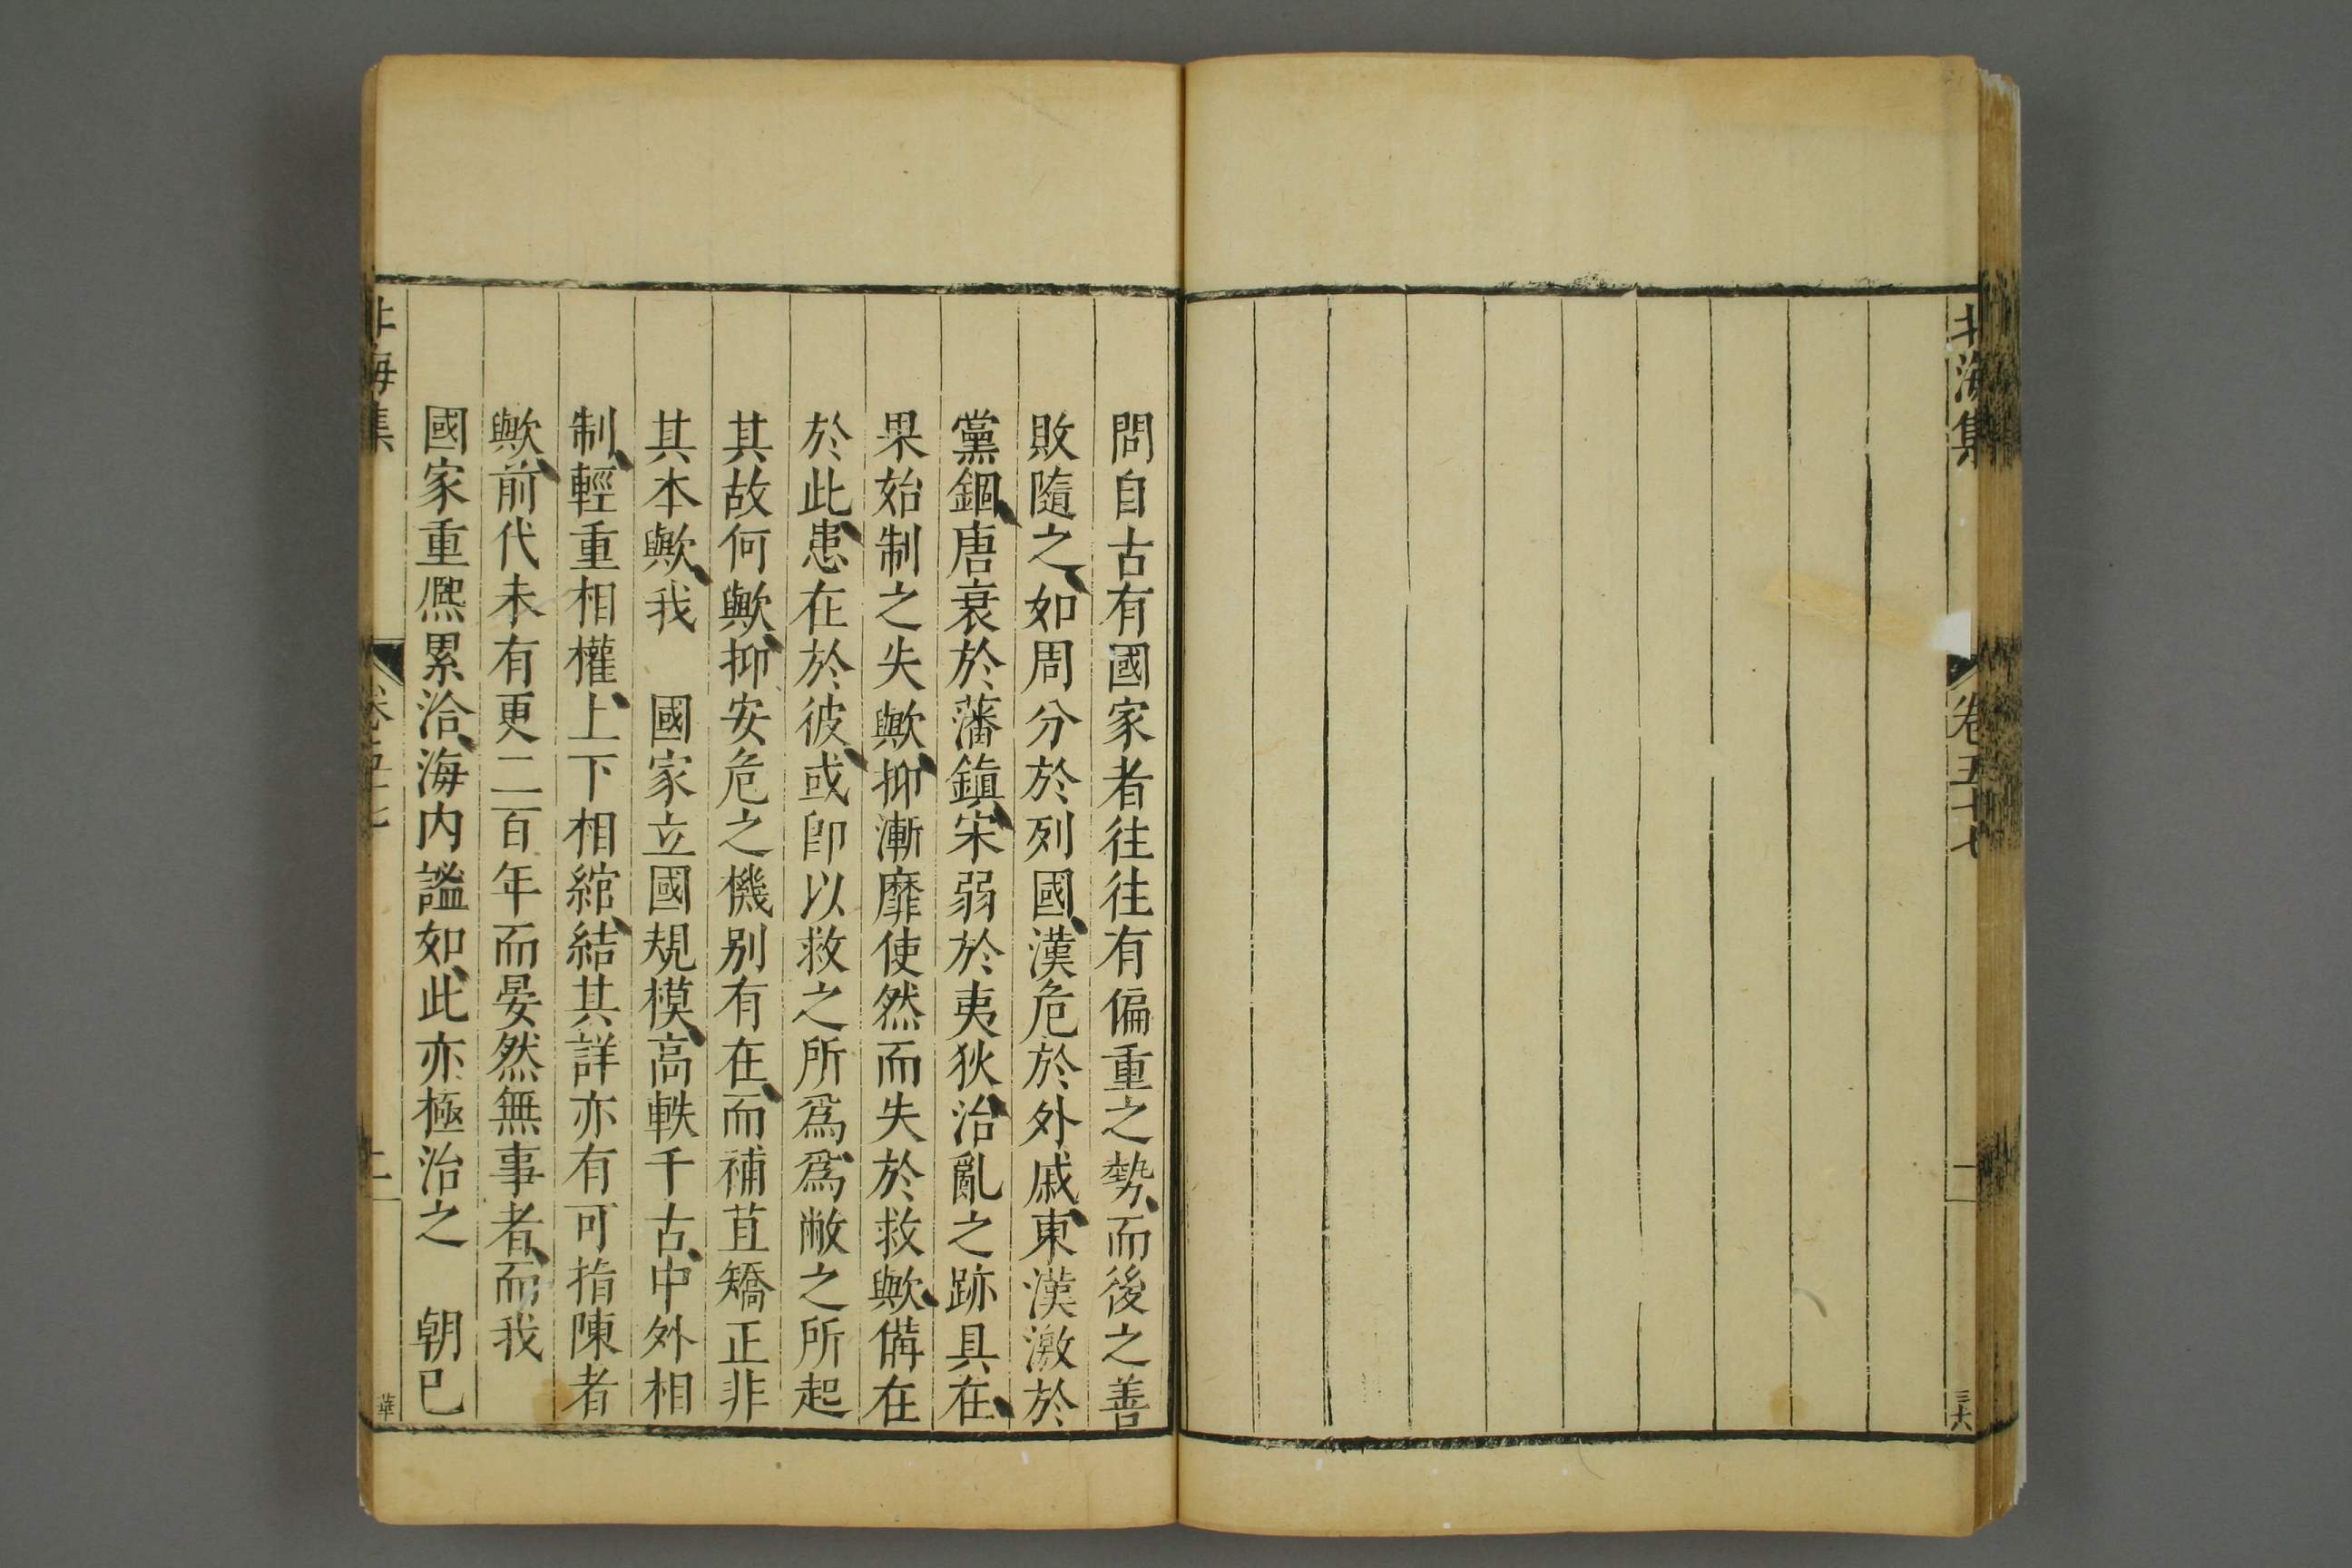 北海集
卷五十七
一
三六
問自古有國家者往往有偏重之勢、而後之善
敗隨之、如周分於列國、漢危於外戚、東漢激於
黨錮、唐衰於藩鎮、宋弱於夷狄、治亂之跡具在、
果始制之失歟、抑漸靡使然而失於救歟、備在
於此、患在於彼、或卽以救之所爲、爲敝之所起
其故何歟、抑安危之機别有在、而補苴矯正非
其本歟、我　國家立國規模、高軼千古、中外相
制、輕重相權、上下相綰、結其詳亦有可指陳者
歟、前代未有更二百年而晏然無事者、而我
國家重熈累洽、海内謐如、此亦極治之　朝已
北海集
卷五十七
二
華